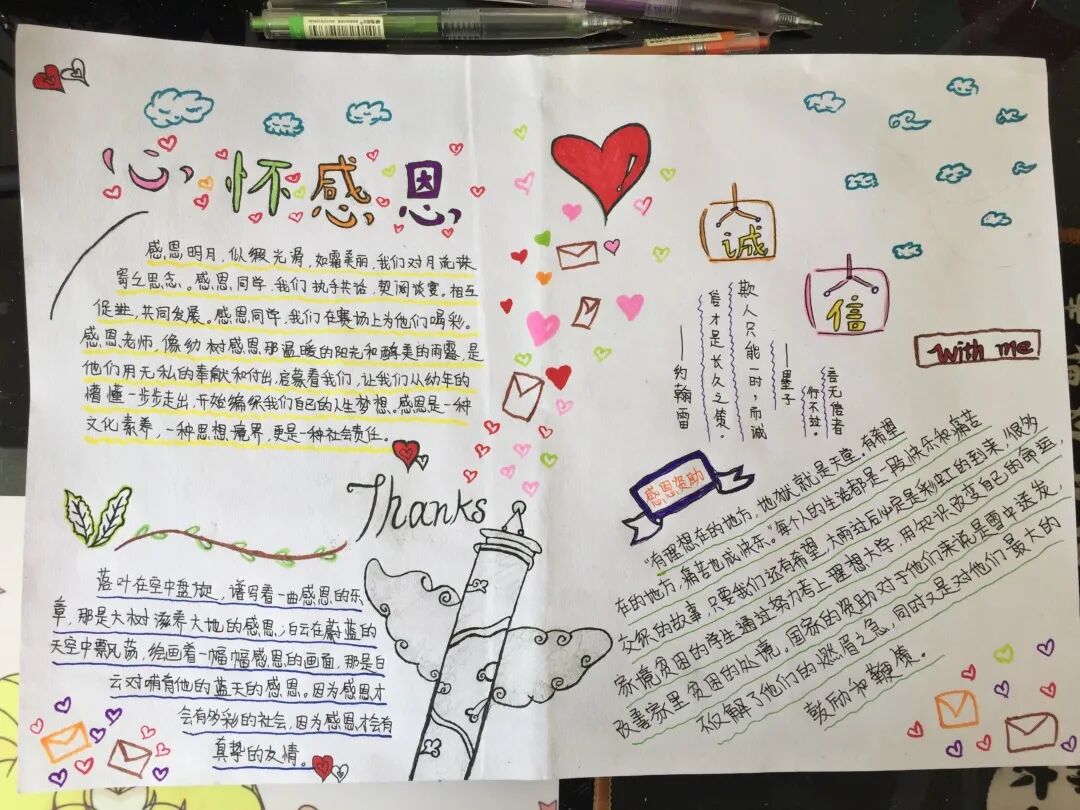 心怀感恩
感恩明月,似缎光滑,如露美丽,我们对月流珠
寄之思念。感恩同学,我们执手共话,契阔谈宴。相互
促进,共同发展。感恩同学,我们在赛场上为他们喝彩。
感恩老师,像幼树感恩那温暖的阳光和醇美的雨露,是
他们用无私的奉献和付出,启蒙着我们,让我们从幼年的
懵懂一步步走出,开始编织我们自己的人生梦想。感恩是一种
文化素养,一种思想境界,更是一种社会责任。
Thanks
落叶在空中盘旋,谱写着一曲感恩的乐
章,那是大树对滋养大地的感恩;白云在蔚蓝的
天空中飘荡,绘画着一幅幅感恩的画面,那是白
云对哺育他的蓝天的感恩。因为感恩才
会有多彩的社会,因为感恩才会有
真挚的友情。
诚
信
with me
言无信者
行不烂。
——墨子
欺人只能一时,而诚
信才是长久之策。
——约翰雷
感恩资助
"有理想在的地方,地狱就是天堂。有希望
在的地方,痛苦也成快乐。"每个人的生活都是一段快乐和痛苦
交织的故事,只要我们还有希望,大雨过后必定是彩虹的到来,很多
家境贫困的学生通过努力考上理想大学,用知识改变自己的命运,
改善家里贫困的处境。国家的资助对于他们来说是雪中送炭,
不仅解了他们的燃眉之急,同时又是对他们最大的
鼓励和鞭策。